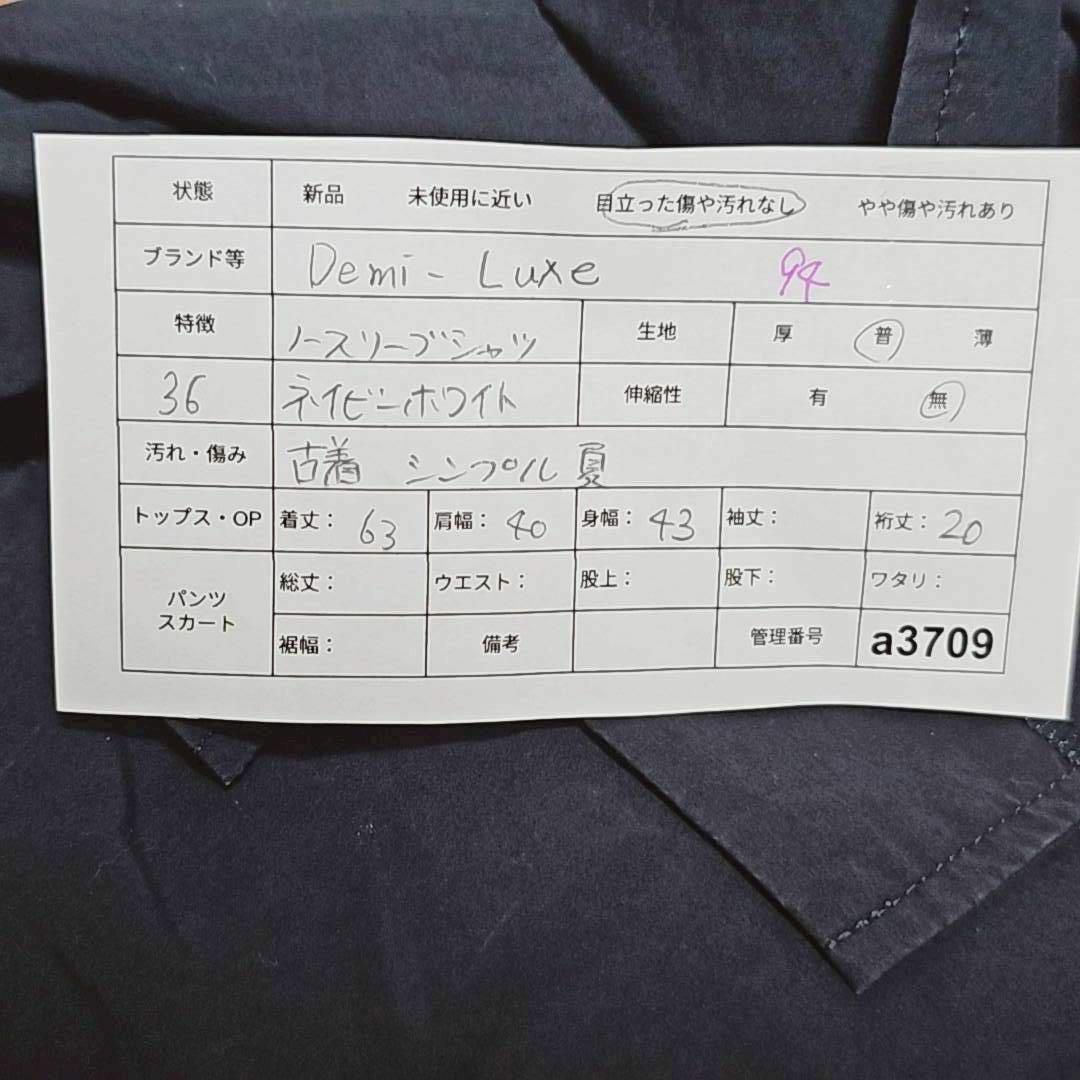 状態 新品 未使用に近い 目立った傷や汚れなし やや傷や汚れあり
ブランド等 Demi-Luxe 94
特徴 ノースリーブシャツ 生地 厚 普 薄
36 ネイビーホワイト 伸縮性 有 無
汚れ・傷み 古着 シンプル 夏
トップス・OP 着丈: 63 肩幅: 40 身幅: 43 袖丈: 裄丈: 20
パンツ スカート 総丈: ウエスト: 股上: 股下: ワタリ:
裾幅: 備考 管理番号 a3709